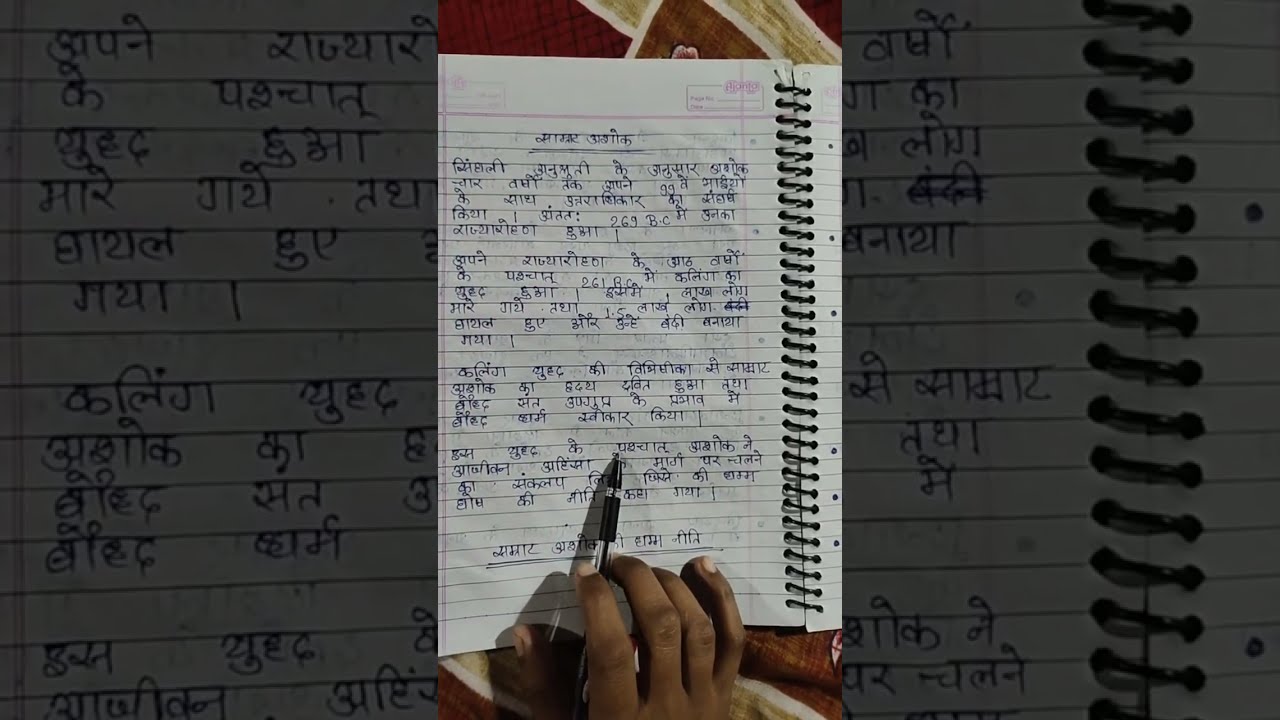 Page No.
Date
साम्राट अशोक
सिंहली अनुश्रुती के अनुसार अशोक
चार वर्षो तक अपने 99 वे भाईयो
के साथ उत्तराधिकार का संघर्ष
किया । अंततः 269 B.C में उनका
राज्यारोहण हुआ ।
अपने राज्यारोहण के आठ वर्षों
के पश्चात् 261 B.C में कलिंग का
युद्ध हुआ । इसमे 1 लाख लोग
मारे गये तथा 1.5 लाख लोग
घायल हुए और उन्हे बंदी बनाया
गया ।
कलिंग युद्ध की विभिषीका से साम्राट
अशोक का हृदय द्रवित हुआ तथा
बौद्ध संत उपगुप्त के प्रभाव में
बौद्ध धर्म स्वीकार किया ।
इस युद्ध के पश्चात् अशोक ने
आजीवन अहिंसा मार्ग पर चलने
का संकल्प जिसे की धम्म
घोष की नीति कहा गया ।
सम्राट अशोक की धम्म नीति